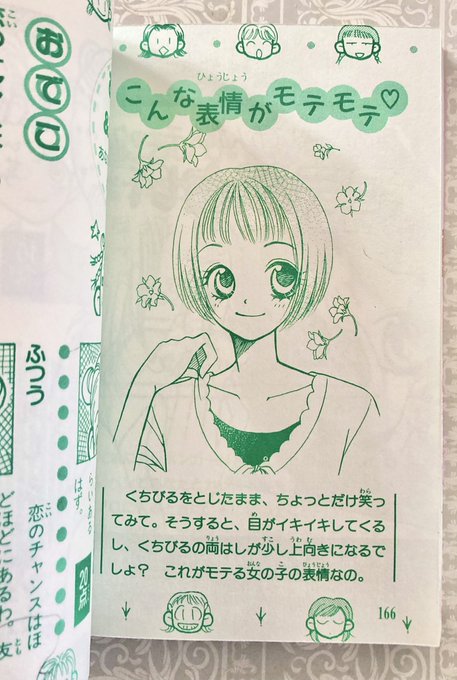 ひょうじょう
こんな表情がモテモテ♡
くちびるをとじたまま、ちょっとだけ笑っ
てみて。そうすると、目がイキイキしてくる
し、くちびるの両はしが少し上向きになるで
しょ? これがモテる女の子の表情なの。
166
ふつう
恋のチャンスはほ
どほどにあるわ。友
らいある
はず。
20点